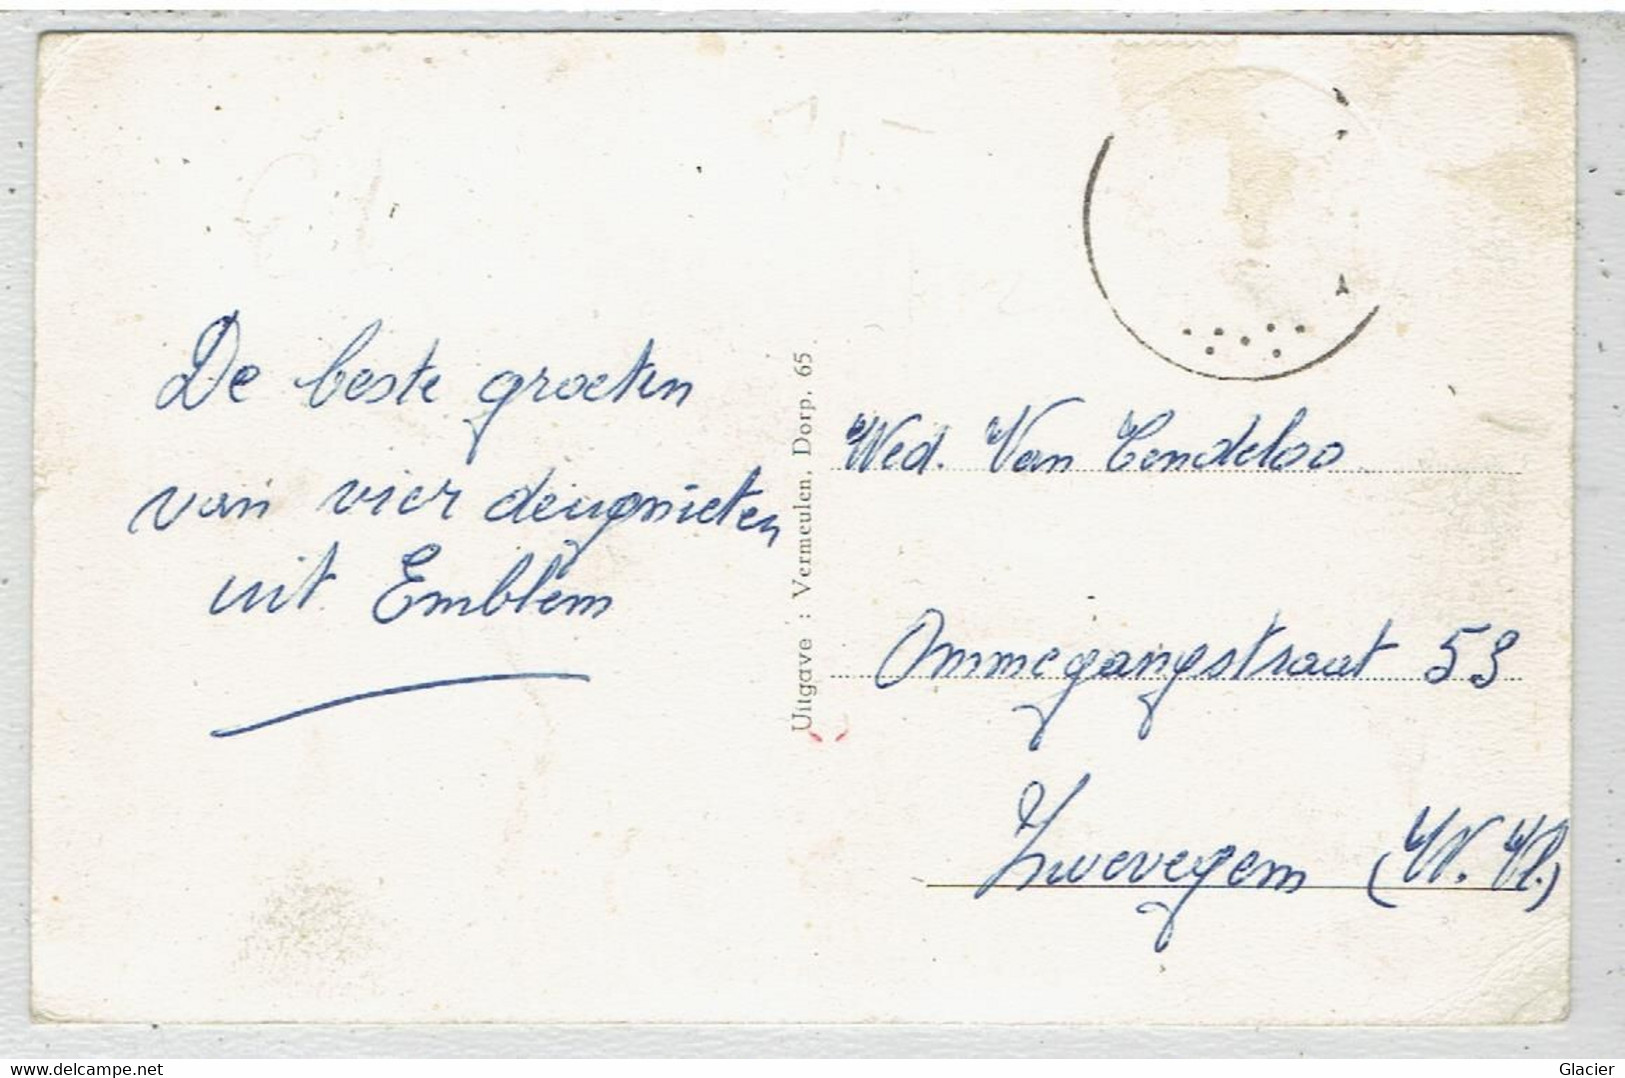 De beste groeten
van vier deugnieten
uit Emblem
Uitgave : Vermeulen, Dorp. 65
Wed. Van Tendeloo
Ommegangstraat 53
Zwevegem (W. Vl.)
delcampe.net
Glacier